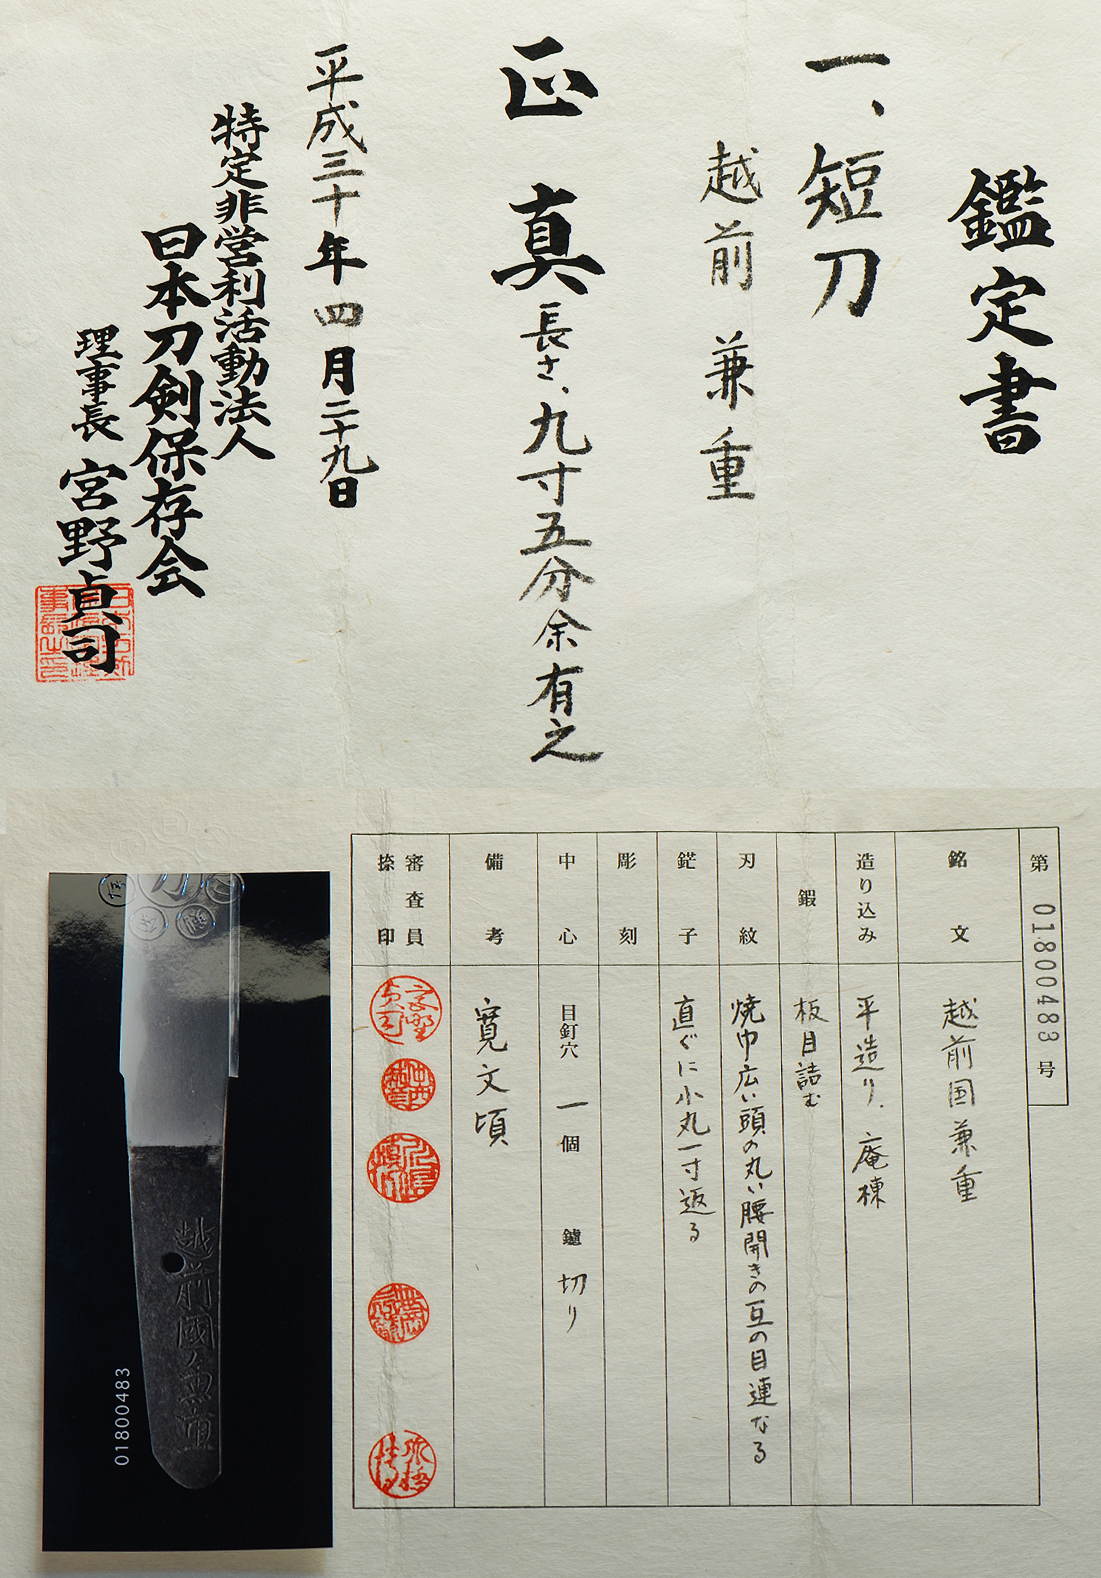 鑑定書
一、短刀
越前 兼重
正真 長さ、九寸五分余有之
平成三十年四月二十九日
特定非営利活動法人
日本刀剣保存会
理事長 宮野貞司
第 01800483 号
銘文 越前国兼重
造り込み 平造り、庵棟
鍜 板目詰む
刃紋 焼巾広い頭の丸い腰開きの互の目連なる
鋩子 直ぐに小丸一寸返る
彫刻
中心 目釘穴 一個 鑢 切り
備考 寛文頃
審査員
捺印
越前國兼重
01800483